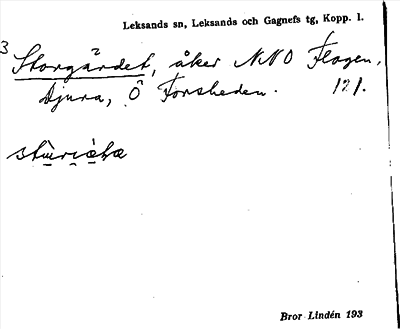 Leksands sn, Leksands och Gagnefs tg, Kopp. l.
3
Storgärdet, åker NNO Flogen,
Djura, Ö Forsheden. 121.
Bror Lindén 193